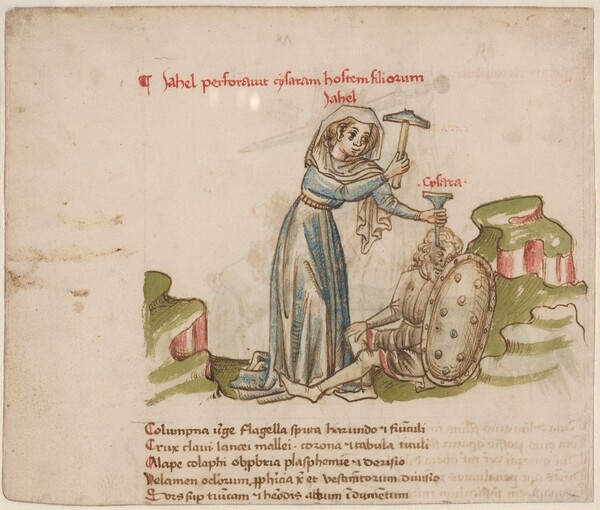 ¶ Jahel perforavit cysaram hostem filiorum
Jahel
. Cysara .
Columpna v̄ge flagella sputa harundo ⁊ funiculi
Crux clavi lancei mallei . corona ⁊ tabula tituli
Alape colaphi obpbria plasphemie ⁊ derisio
Velamen oclorum, ꝓphicia xͥ et vestim̄torum divisio
Sors sup tuīcam ⁊ hēodis album īdumētum